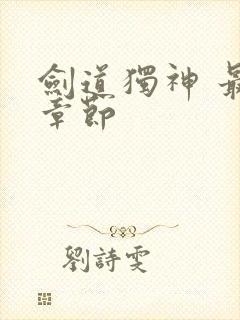 劍道獨神 最
章節
劉詩雯